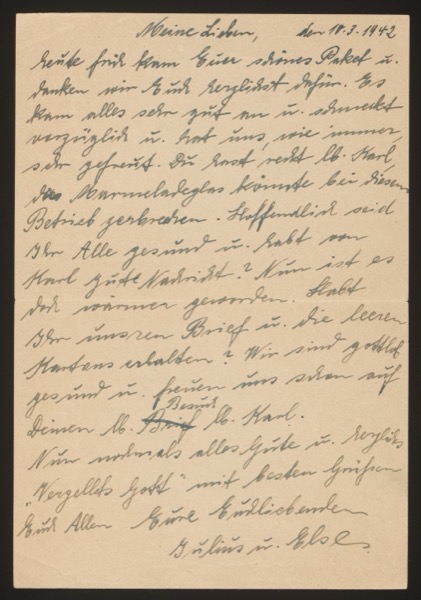 Meine Lieben, den 18.3.1942
heute früh kam Euer schönes Paket u.
danken wir Euch herzlichst dafür. Es
kam alles sehr gut an u. schmeckt
vorzüglich u. hat uns, wie immer,
sehr gefreut. Du hast recht lb. Karl,
das Marmeladeglas könnte bei diesem
Betrieb zerbrechen. Hoffendlich seid
Ihr Alle gesund u. habt von
Karl gute Nachricht? Nun ist es
doch wärmer geworden. Habt
Ihr unsren Brief u. die leeren
Kartons erhalten? Wir sind gottlob
gesund u. freuen uns schon auf
Deinen lb. Besuch lb. Karl.
Nun nochmals alles Gute u. herzlichs
"Vergellts Gott" mit besten Grüßen
Euch Allen Eure Euchliebenden
Julius u. Else.